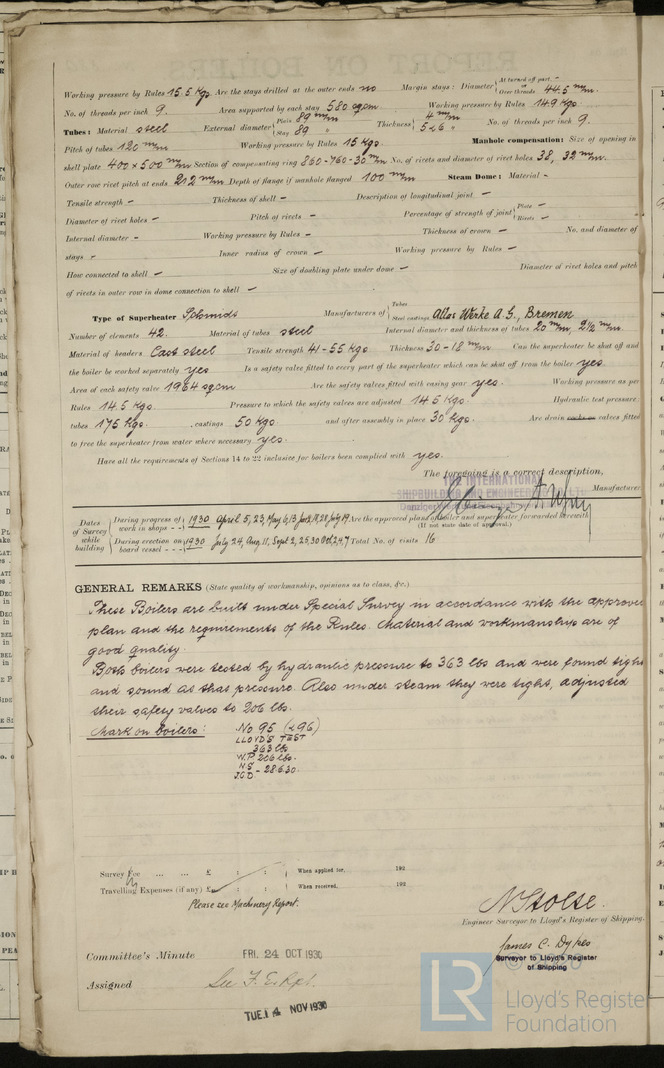 Working pressure by Rules 15.5 Kgs Are the stays drilled at the outer ends no Margin stays: Diameter { At turned off part, - or Over threads 44.5 m/m.
No. of threads per inch 9. Area supported by each stay 580 sqcm Working pressure by Rules 14.9 Kgs.
Tubes: Material steel External diameter { Plain 89 m/m Stay 89 " Thickness { 4 m/m 5 & 6 " No. of threads per inch 9.
Pitch of tubes 120 m/m Working pressure by Rules 15 Kgs. Manhole compensation: Size of opening in
shell plate 400 × 500 m/m Section of compensating ring 860-760-30 m/m No. of rivets and diameter of rivet holes 38, 32 m/m.
Outer row rivet pitch at ends 212 m/m Depth of flange if manhole flanged 100 m/m Steam Dome: Material -
Tensile strength - Thickness of shell - Description of longitudinal joint -
Diameter of rivet holes - Pitch of rivets - Percentage of strength of joint { Plate - Rivets -
Internal diameter - Working pressure by Rules - Thickness of crown - No. and diameter of
stays - Inner radius of crown - Working pressure by Rules -
How connected to shell - Size of doubling plate under dome - Diameter of rivet holes and pitch
of rivets in outer row in dome connection to shell -
Type of Superheater Schmidt Manufacturers of { Tubes Steel castings Atlas Werke A.G., Bremen
Number of elements 42. Material of tubes steel Internal diameter and thickness of tubes 20 m/m, 2 1/2 m/m.
Material of headers Cast steel Tensile strength 41-55 Kgs. Thickness 30-18 m/m Can the superheater be shut off and
the boiler be worked separately yes Is a safety valve fitted to every part of the superheater which can be shut off from the boiler yes.
Area of each safety valve 1964 sqcm Are the safety valves fitted with easing gear yes. Working pressure as per
Rules 14.5 Kgs. Pressure to which the safety valves are adjusted 14.5 Kgs. Hydraulic test pressure:
tubes 175 Kgs. castings 50 Kgs. and after assembly in place 30 Kgs. Are drain cocks or valves fitted
to free the superheater from water where necessary yes.
Have all the requirements of Sections 14 to 22 inclusive for boilers been complied with yes.
The foregoing is a correct description,
THE INTERNATIONAL
SHIPBUILDING AND ENGINEERING
Manufacturer
Dates of Survey while building { During progress of work in shops - - 1930 April 5, 23, May 6, 13 Are the approved plans of boiler and superheater forwarded herewith (If not state date of approval.)
During erection on board vessel - - - 1930 July 24, Aug. 11, Sept. 2, 25, 30 Oct 2, 4, 7 Total No. of visits 16
GENERAL REMARKS (State quality of workmanship, opinions as to class, &c.)
These Boilers are built under Special Survey in accordance with the approved
plan and the requirements of the Rules. Material and workmanship are of
good quality.
Both boilers were tested by hydraulic pressure to 363 lbs and were found tight
and sound at that pressure. Also under steam they were tight, adjusted
their safety valves to 206 lbs.
Mark on boilers: No 95 (& 96)
LLOYD'S TEST
363 lbs
W.P. 206 lbs.
N S
JCD - 28.6.30.
Survey Fee ... ... £ : : When applied for, 192
Travelling Expenses (if any) £ : : When received, 192
Please see Machinery Report.
N Stolse.
Engineer Surveyor to Lloyd's Register of Shipping.
James C. Dykes
Surveyor to Lloyd's Register
of Shipping
Committee's Minute FRI. 24 OCT 1930
Assigned See F. E. Rpt.
TUE. 4 NOV 1930
LR
Lloyd's Registe
Foundation